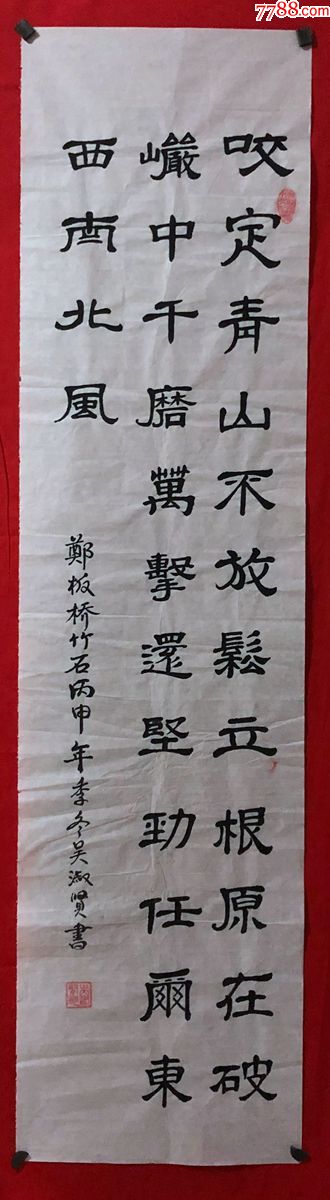 7788.com
咬定青山不放鬆立根原在破
巗中千磨萬擊還堅勁任爾東
西南北風
鄭板桥竹石丙申年季冬吴淑贤書